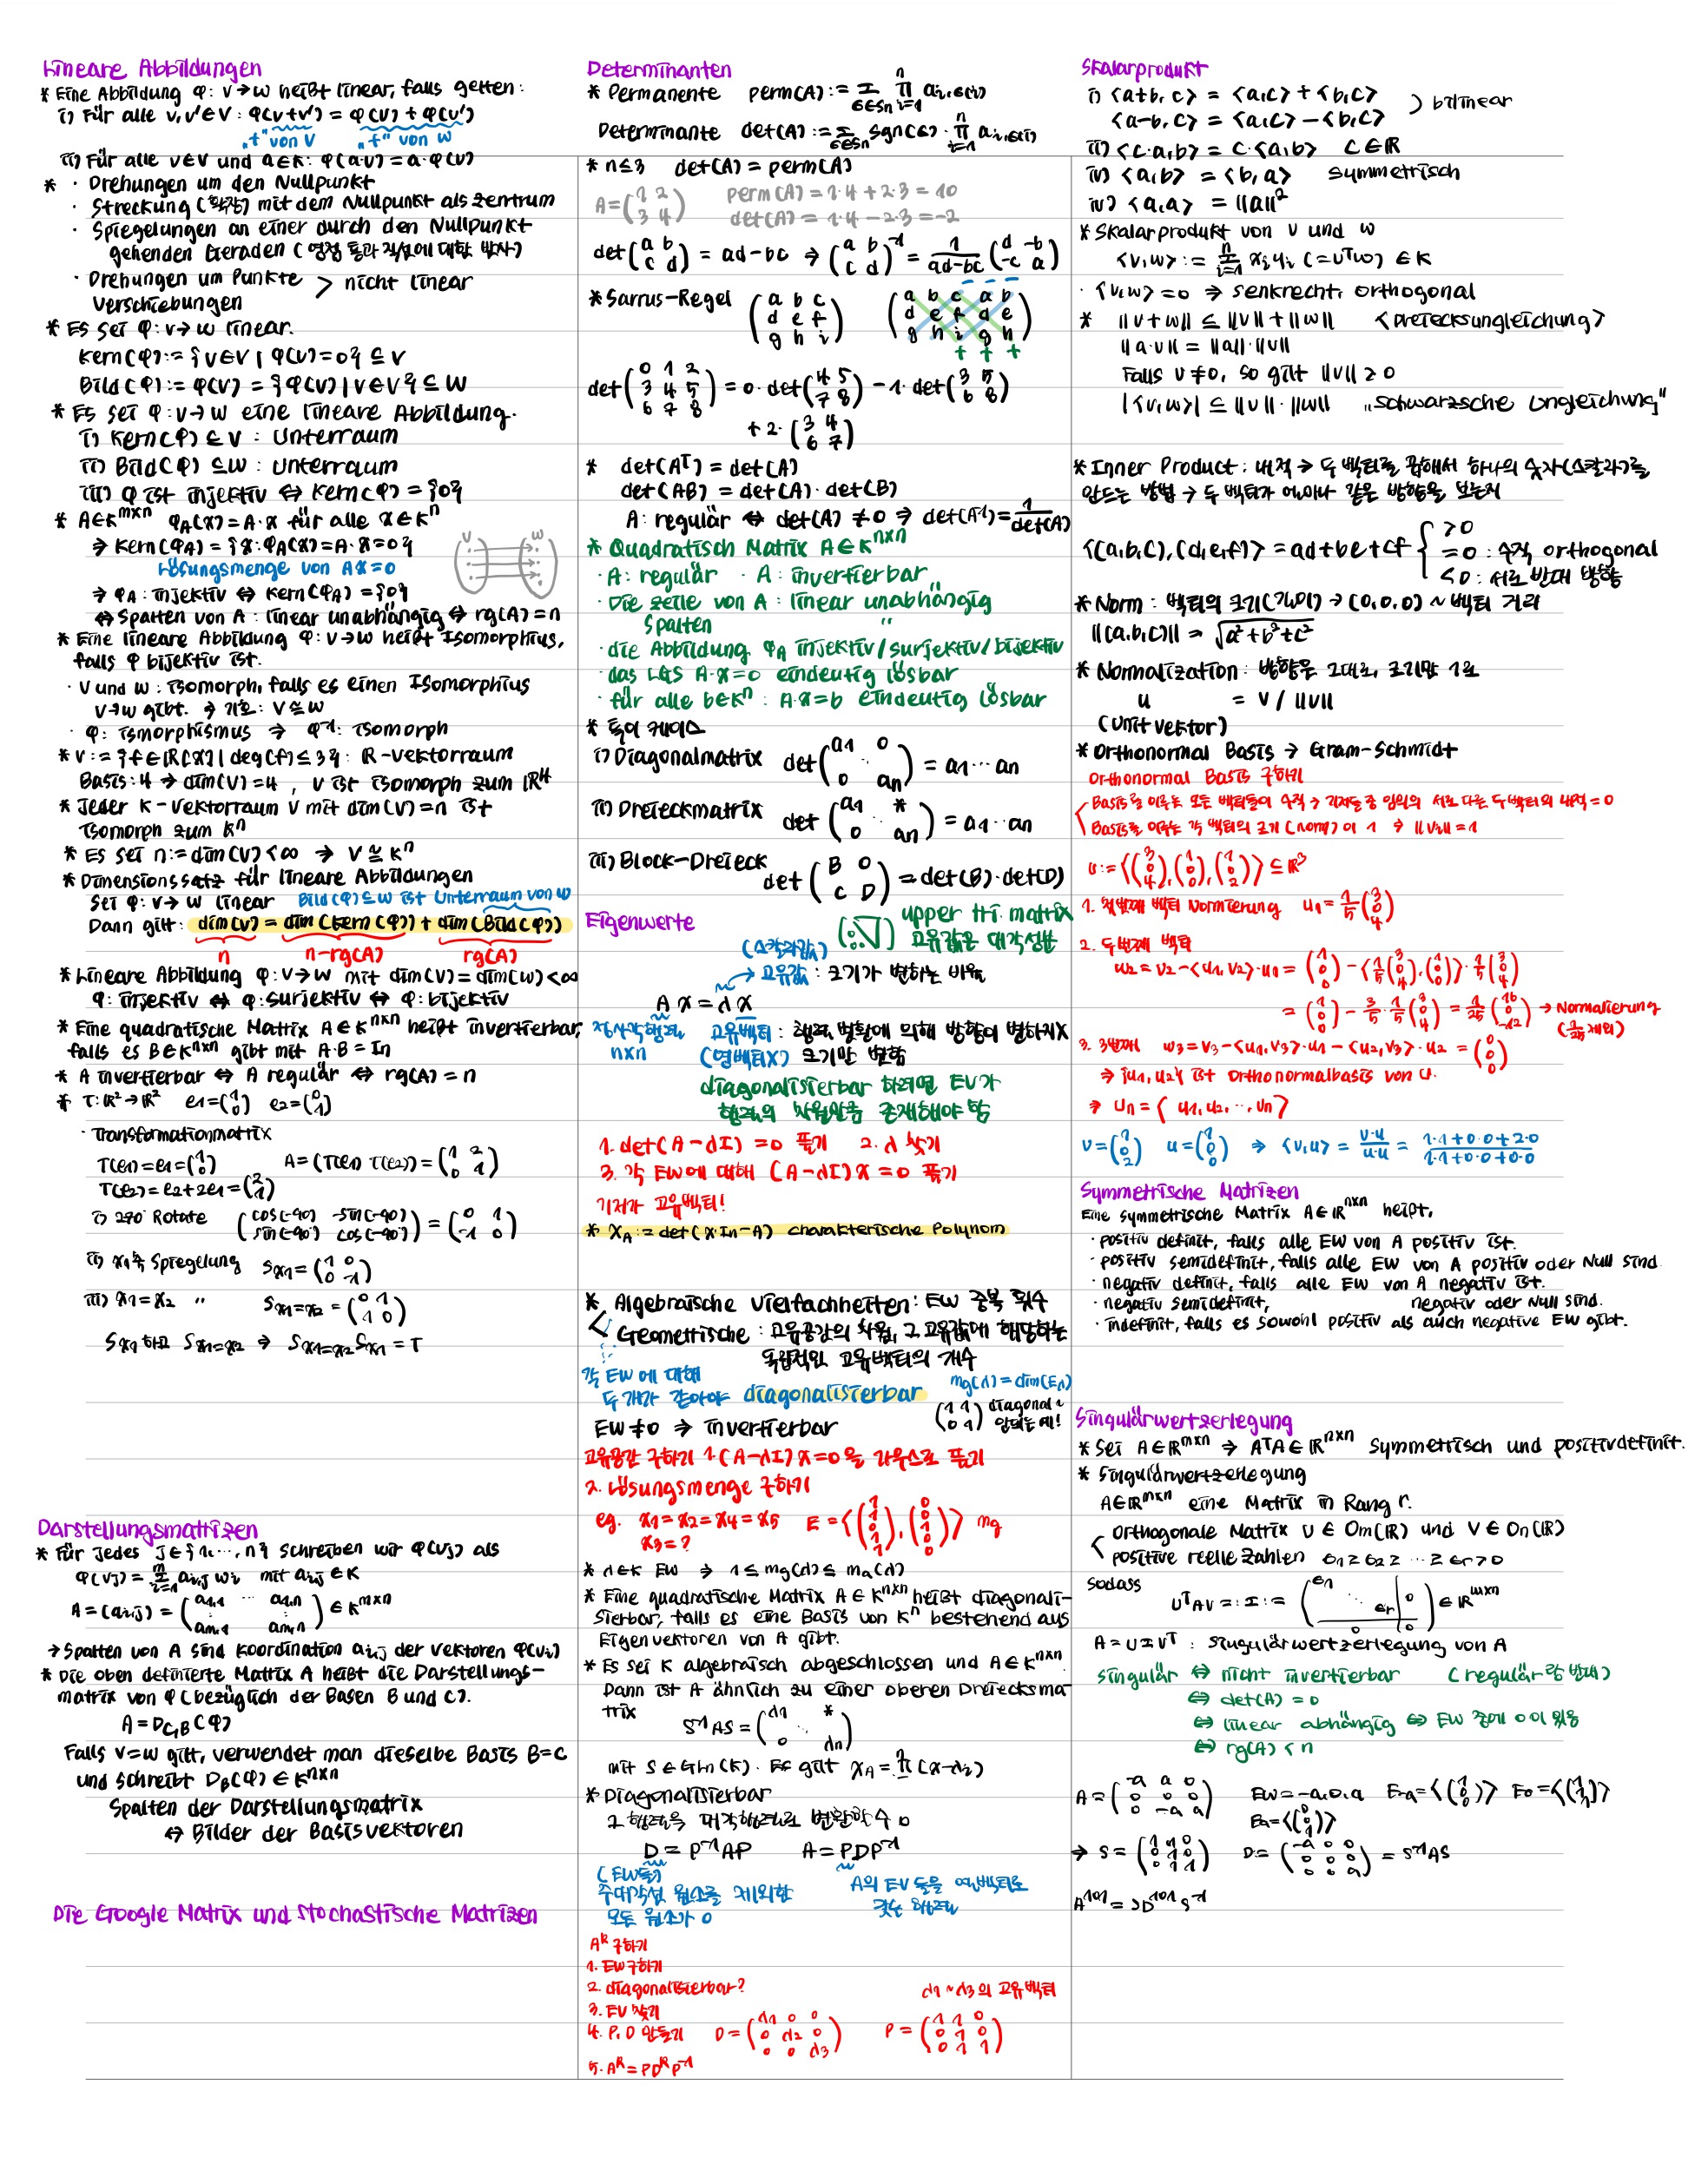 Lineare Abbildungen
* Eine Abbildung φ: V→W heißt linear, falls gelten:
i) Für alle v, v'∈V : φ(v+v') = φ(v) + φ(v')
„+" von V „+" von W
ii) Für alle v∈V und a∈K: φ(a·v) = a·φ(v)
* · Drehungen um den Nullpunkt
· Streckung (확장) mit dem Nullpunkt als Zentrum
· Spiegelungen an einer durch den Nullpunkt
gehenden Geraden (영점 통과 직선에 대한 반사)
· Drehungen um Punkte > nicht linear
Verschiebungen
* Es sei φ: V→W linear.
Kern(φ) := {v∈V | φ(v)=0} ⊆ V
Bild(φ) := φ(V) = {φ(v) | v∈V} ⊆ W
* Es sei φ: V→W eine lineare Abbildung.
i) Kern(φ) ⊆ V : Unterraum
ii) Bild(φ) ⊆ W : Unterraum
iii) φ ist injektiv ⇔ Kern(φ) = {0}
* A∈K^{m×n} φ_A(x) = A·x für alle x∈K^n
⇒ Kern(φ_A) = {x : φ_A(x) = A·x = 0}
Lösungsmenge von Ax=0
V W
⇒ φ_A : injektiv ⇔ Kern(φ_A) = {0}
⇔ Spalten von A : linear unabhängig ⇔ rg(A) = n
* Eine lineare Abbildung φ: V→W heißt Isomorphius,
falls φ bijektiv ist.
· V und W : isomorph, falls es einen Isomorphius
V→W gibt. ⇒ 기호: V ≅ W
· φ: ismorphismus ⇒ φ^{-1}: isomorph
* V := {f∈ℝ[x] | deg(f) ≤ 3} : ℝ-Vektorraum
Basis: 4 → dim(V) = 4 , V ist isomorph zum ℝ^4
* Jeder K-Vektorraum V mit dim(V) = n ist
isomorph zum K^n
* Es sei n := dim(V) < ∞ ⇒ V ≅ K^n
* Dimensionssatz für lineare Abbildungen
Sei φ: V→W linear Bild(φ) ⊆ W ist Unterraum von W
Dann gilt: dim(V) = dim(Kern(φ)) + dim(Bild(φ))
n n-rg(A) rg(A)
* Lineare Abbildung φ: V→W mit dim(V) = dim(W) < ∞
φ: injektiv ⇔ φ: surjektiv ⇔ φ: bijektiv
* Eine quadratische Matrix A∈K^{n×n} heißt invertierbar,
falls es B∈K^{n×n} gibt mit A·B = In
* A invertierbar ⇔ A regulär ⇔ rg(A) = n
* T: ℝ²→ℝ² e1 = (1 0) e2 = (0 1)
· Transformationmatrix
T(e1) = e1 = (1 0) A = (T(e1) T(e2)) = (1 2 / 0 1)
T(e2) = e2 + 2e1 = (2 1)
i) 270° Rotate (cos(-90) -sin(-90) / sin(-90) cos(-90)) = (0 1 / -1 0)
ii) x1축 Spiegelung S_{x1} = (1 0 / 0 -1)
iii) x1 = x2 " S_{x1=x2} = (0 1 / 1 0)
S_{x1} 하고 S_{x1=x2} ⇒ S_{x1=x2} S_{x1} = T
Darstellungsmatrizen
* Für jedes j∈{1,…,n} schreiben wir φ(vj) als
φ(vj) = Σ_{i=1}^{m} a_{i,j} w_i mit a_{ij} ∈ K
A = (a_{i,j}) = (a_{1,1} … a_{1,n} / a_{m,1} a_{m,n}) ∈ K^{m×n}
→ Spalten von A sind Koordination a_{i,j} der Vektoren φ(vi)
* Die oben definierte Matrix A heißt die Darstellungs-
matrix von φ (bezüglich der Basen B und C).
A = D_{C,B}(φ)
Falls V=W gilt, verwendet man dieselbe Basis B=C
und schreibt D_B(φ) ∈ K^{n×n}
Spalten der Darstellungsmatrix
⇔ Bilder der Basisvektoren
Die Google Matrix und Stochastische Matrizen
Determinanten
* Permanente perm(A) := Σ_{σ∈Sn} Π_{i=1}^{n} a_{i,σ(i)}
Determinante det(A) := Σ_{σ∈Sn} sgn(σ) · Π_{i=1}^{n} a_{i,σ(i)}
* n≤3 det(A) = perm(A)
A = (1 2 / 3 4) perm(A) = 1·4 + 2·3 = 10
det(A) = 1·4 − 2·3 = −2
det(a b / c d) = ad−bc ⇒ (a b / c d)^{-1} = 1/(ad−bc) (d −b / −c a)
* Sarrus-Regel (a b c / d e f / g h i) (a b c a b / d e f d e / g h i g h)
− − −
+ + +
det(0 1 2 / 3 4 5 / 6 7 8) = 0·det(4 5 / 7 8) − 1·det(3 5 / 6 8)
+ 2·(3 4 / 6 7)
* det(A^T) = det(A)
det(AB) = det(A)·det(B)
A: regulär ⇔ det(A) ≠ 0 ⇒ det(A^{-1}) = 1/det(A)
* Quadratisch Matrix A∈K^{n×n}
· A: regulär · A: invertierbar
· Die Zeile von A : linear unabhängig
Spalten "
· die Abbildung φ_A injektiv/surjektiv/bijektiv
· das LGS A·x=0 eindeutig lösbar
· für alle b∈K^n : A·x=b eindeutig lösbar
* 특이 케이스
i) Diagonalmatrix det(a1 0 / 0 an) = a1⋯an
ii) Dreieckmatrix det(a1 * / 0 an) = a1⋯an
iii) Block-Dreieck det(B 0 / C D) = det(B)·det(D)
Eigenwerte
upper tri. matrix
고유값은 대각성분
(스칼라값)
→ 고유값 : 크기가 변하는 비율
A x = λ x
정사각행렬 고유벡터 : 행렬 변환에 의해 방향이 변하지X
n×n (영벡터X) 크기만 변함
diagonalisierbar 하려면 EV가
행렬의 차원만큼 존재해야 함
1. det(A−λI) = 0 풀기 2. λ 찾기
3. 각 EW에 대해 (A−λI)x = 0 풀기
기저가 고유벡터!
* χ_A := det(x·In−A) charakterische Polynom
* Algebraische Vielfachheiten : EW 중복 횟수
Geometrische : 고유공간의 차원, 그 고유값에 해당하는
독립적인 고유벡터의 개수
각 EW에 대해
두 개가 같아야 diagonalisierbar mg(λ) = dim(Eλ)
EW≠0 ⇒ invertierbar (1 1 / 0 1) diagonal~
안되는 예!
고유공간 구하기 1. (A−λI)x=0을 가우스로 풀기
2. Lösungsmenge 구하기
eg. x1 = x2 = x4 = x5 E = ⟨(1 1 0 1 1), (0 0 1 0 0)⟩ mg
x3 = ?
* λ∈K EW ⇒ 1 ≤ mg(λ) ≤ ma(λ)
* Eine quadratische Matrix A∈K^{n×n} heißt diagonali-
sierbar, falls es eine Basis von K^n bestehend aus
Eigenvektoren von A gibt.
* Es sei K algebraisch abgeschlossen und A∈K^{n×n}.
Dann ist A ähnlich zu einer oberen Dreiecksma
trix
S^{-1}AS = (λ1 * / 0 λn)
mit S∈Gln(K). Es gilt χ_A = Π (x−λi)
* Diagonalisierbar
그 행렬을 대각행렬로 변환할 수 o
D = P^{-1}AP A = PDP^{-1}
(EW들) A의 EV들을 열벡터로
주대각선 원소를 제외한 갖는 행렬
모든 원소가 0
A^k 구하기
1. EW구하기
2. diagonalisierbar? λ1~λ3의 고유벡터
3. EV 찾기
4. P, D 만들기 D = (λ1 0 0 / 0 λ2 0 / 0 0 λ3) P = (1 1 0 / 0 1 0 / 0 1 1)
5. A^k = PD^kP^{-1}
Skalarprodukt
i) ⟨a+b, c⟩ = ⟨a,c⟩ + ⟨b,c⟩ ) bilinear
⟨a−b, c⟩ = ⟨a,c⟩ − ⟨b,c⟩
ii) ⟨c·a, b⟩ = c·⟨a,b⟩ c∈ℝ
iii) ⟨a,b⟩ = ⟨b,a⟩ symmetrisch
iv) ⟨a,a⟩ = ||a||²
* Skalarprodukt von v und w
⟨v,w⟩ := Σ_{i=1}^{n} xi yi (= v^T w) ∈ K
· ⟨v,w⟩ = 0 ⇒ senkrecht, orthogonal
* ||v+w|| ≤ ||v|| + ||w|| <Dreiecksungleichung>
||a·v|| = ||a||·||v||
Falls v≠0, so gilt ||v|| ≥ 0
|⟨v,w⟩| ≤ ||v||·||w|| „Schwarzsche Ungleichung"
* Inner Product : 내적 → 두 벡터를 곱해서 하나의 숫자(스칼라)를
만드는 방법 → 두 벡터가 얼마나 같은 방향을 보는지
⟨(a,b,c), (d,e,f)⟩ = ad+be+cf { >0
=0 : 수직 orthogonal
<0 : 서로 반대 방향
* Norm : 벡터의 크기(길이) → (0,0,0) ~ 벡터 거리
||(a,b,c)|| = √(a²+b²+c²)
* Normalization : 방향은 그대로, 크기만 1로
u = v / ||v||
(Unit vektor)
* Orthonormal Basis → Gram-Schmidt
Orthonormal Basis 구하기
Basis를 이루는 모든 벡터들이 수직 → 기저들 중 임의의 서로 다른 두 벡터의 내적 = 0
Basis를 이루는 각 벡터의 크기(norm)이 1 → ||vi|| = 1
U := ⟨(3 0 4), (1 0 0), (1 0 2)⟩ ⊆ ℝ³
1. 첫번째 벡터 Normierung u1 = 1/5 (3 0 4)
2. 두번째 벡터
w2 = v2 − ⟨u1, v2⟩·u1 = (1 0 0) − ⟨1/5 (3 0 4), (1 0 0)⟩ · 1/5 (3 0 4)
= (1 0 0) − 3/5 · 1/5 (3 0 4) = 1/25 (16 0 −12) → Normalierung
(1/25 제외)
3. 3번째 w3 = v3 − ⟨u1, v3⟩·u1 − ⟨u2, v3⟩·u2 = (0 0 0)
⇒ {u1, u2} ist Orthonormalbasis von U.
⇒ Un = ⟨u1, u2, …, un⟩
v = (1 0 2) u = (1 0 0) ⇒ ⟨v,u⟩ = v·u / u·u = (1·1+0·0+2·0) / (1·1+0·0+0·0)
Symmetrische Matrizen
Eine symmetrische Matrix A∈ℝ^{n×n} heißt,
· positiv definit, falls alle EW von A positiv ist.
· positiv semidefinit, falls alle EW von A positiv oder Null sind.
· negativ definit, falls alle EW von A negativ ist.
· negativ semidefinit, negativ oder Null sind.
· indefinit, falls es sowohl positiv als auch negative EW gibt.
Singulärwertzerlegung
* Sei A∈ℝ^{m×n} ⇒ A^TA∈ℝ^{n×n} symmetrisch und positivdefinit.
* Singulärwertzerlegung
A∈ℝ^{m×n} eine Matrix in Rang r.
Orthogonale Matrix U ∈ Om(ℝ) und V ∈ On(ℝ)
positive reelle Zahlen σ1 ≥ σ2 ≥ ⋯ ≥ σr > 0
sodass U^TAV =: Σ := (σ1 σr 0 / 0 0) ∈ ℝ^{m×n}
A = UΣV^T : Singulärwertzerlegung von A
singulär ⇔ nicht invertierbar (regulär랑 반대)
⇔ det(A) = 0
⇔ linear abhängig ⇔ EW 중에 0이 있음
⇔ rg(A) < n
A = (−a a 0 / 0 0 0 / 0 −a a) EW = −a, 0, a E−a = ⟨(1 0 0)⟩ E0 = ⟨(1 1 1)⟩
Ea = ⟨(0 0 1)⟩
→ S = (1 1 0 / 0 1 0 / 0 1 1) D = (−a 0 0 / 0 0 0 / 0 0 a) = S^{-1}AS
A^{101} = SD^{101}S^{-1}